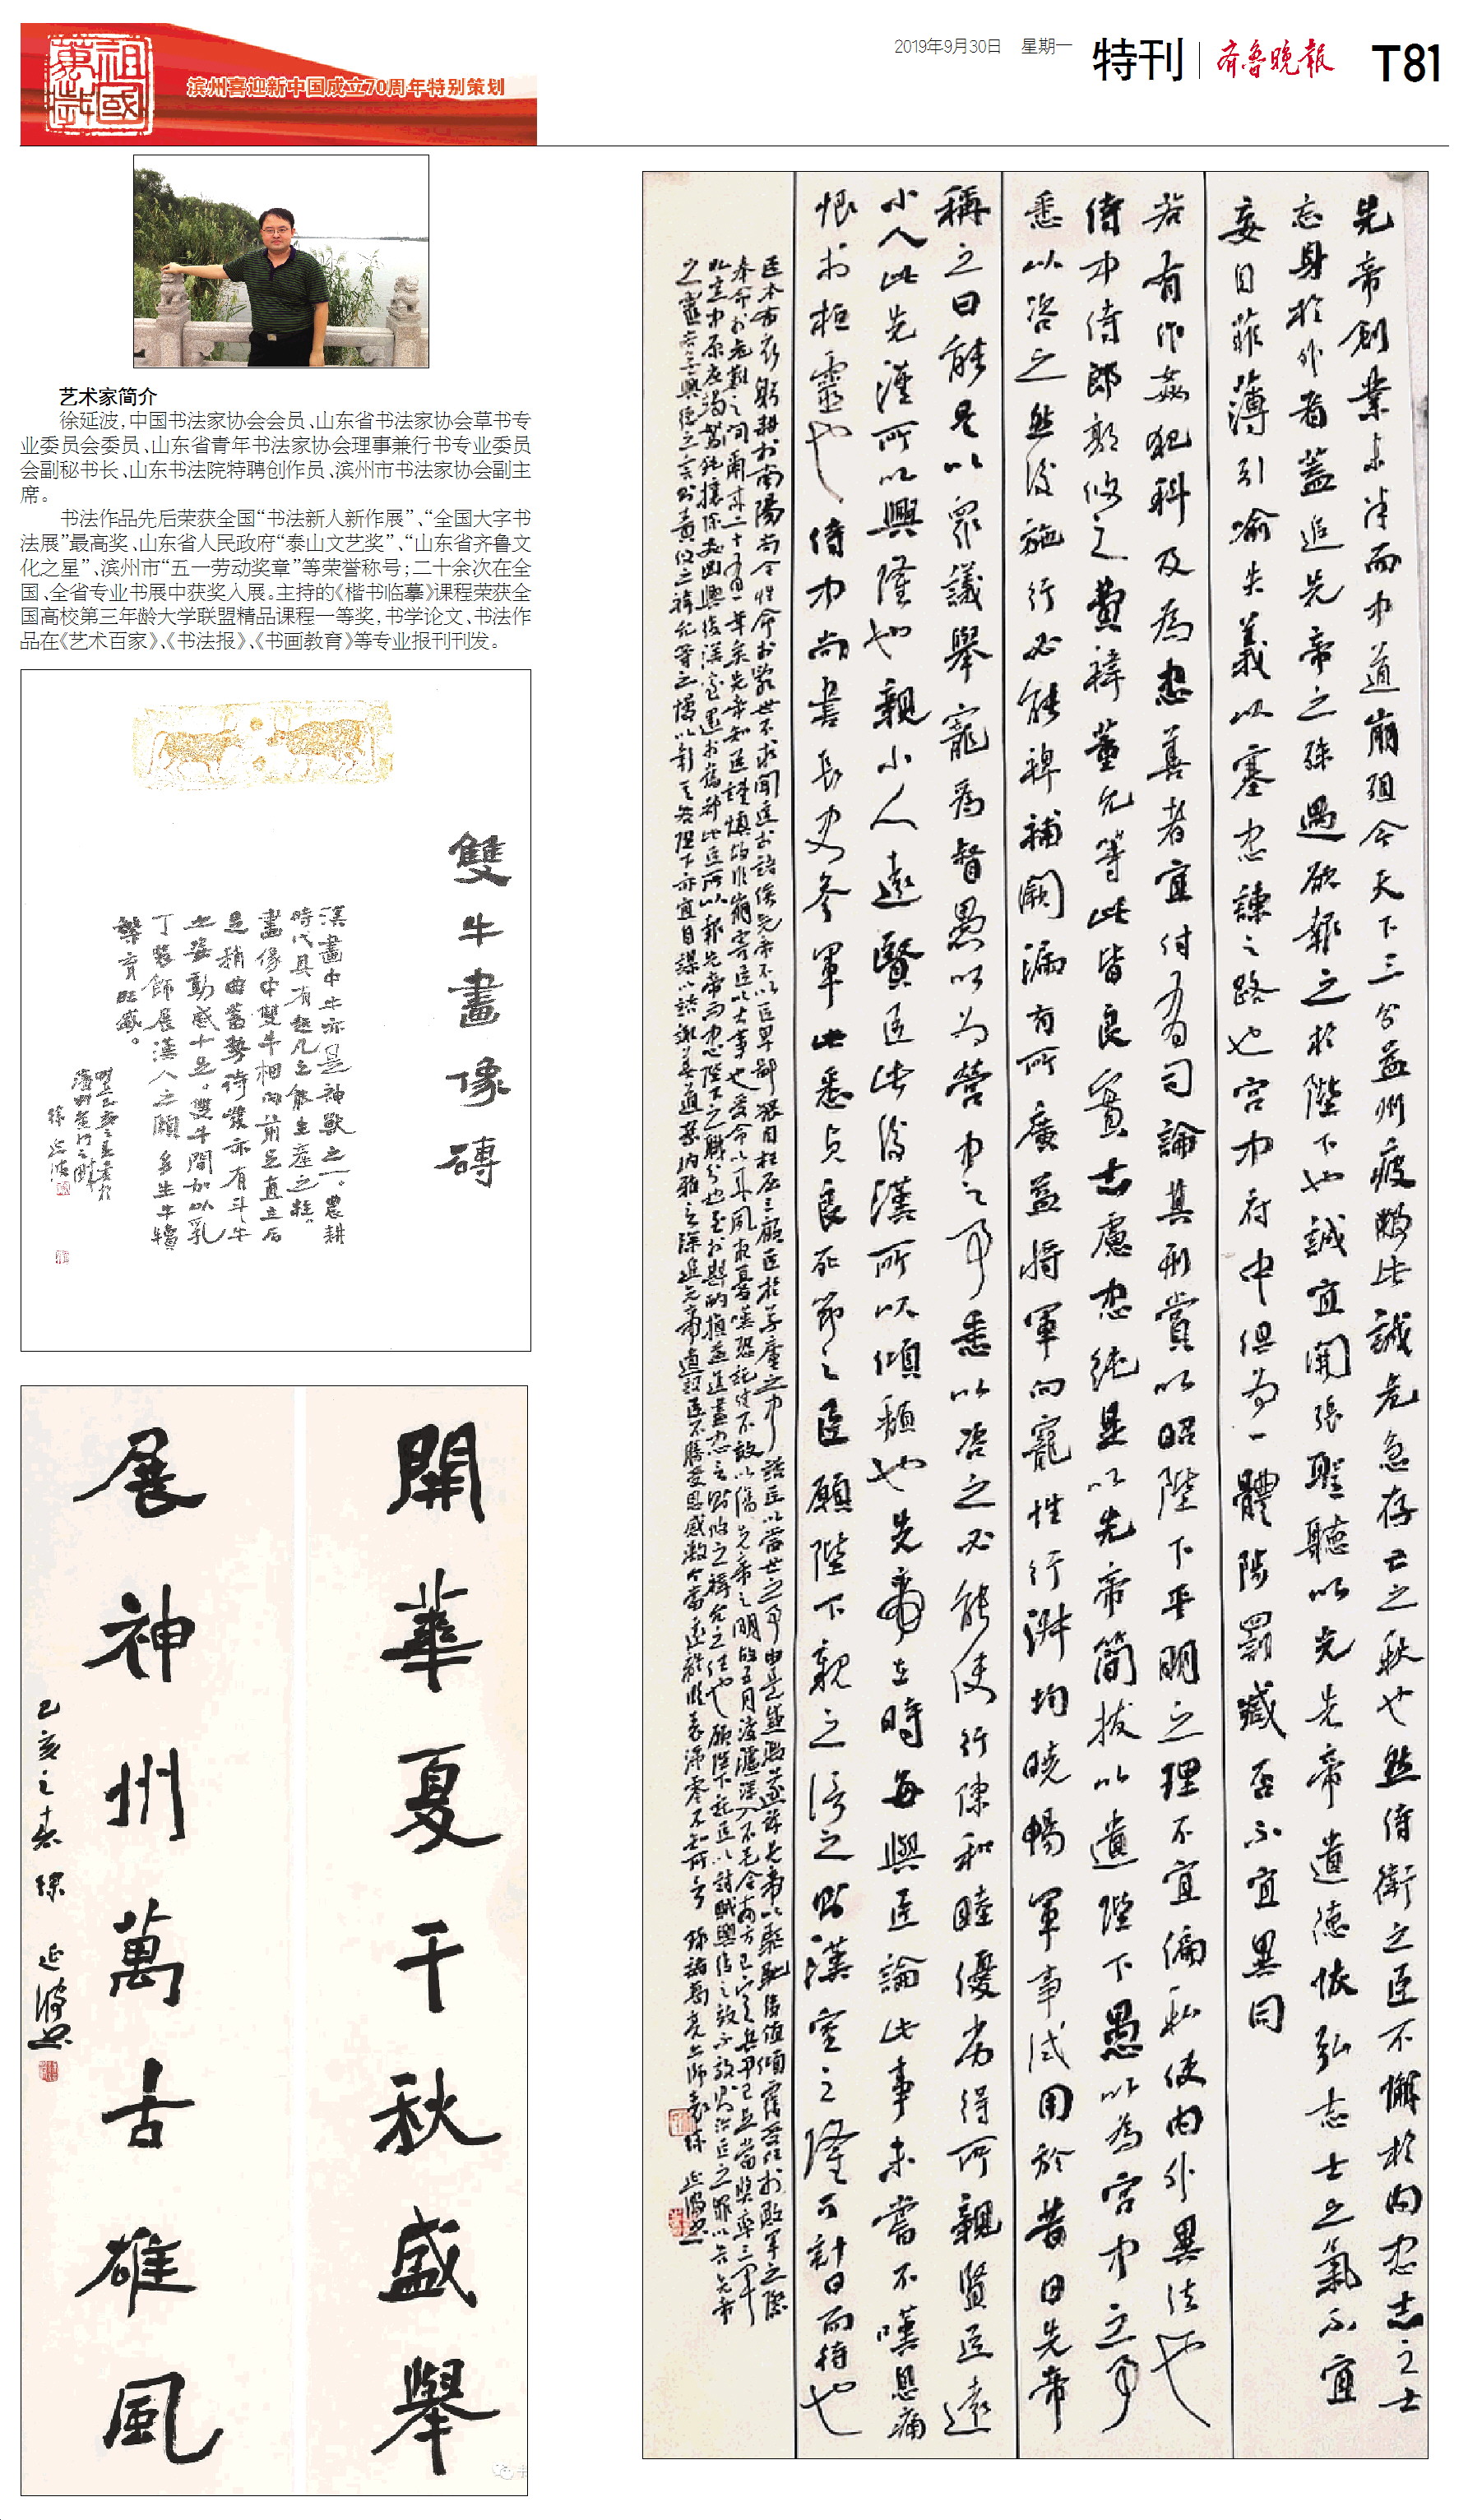 祖國萬歲
滨州喜迎新中国成立70周年特别策划
2019年9月30日 星期一 特刊 齐鲁晚报 T81
艺术家简介
徐延波，中国书法家协会会员、山东省书法家协会草书专
业委员会委员、山东省青年书法家协会理事兼行书专业委员
会副秘书长、山东书法院特聘创作员、滨州市书法家协会副主
席。
书法作品先后荣获全国“书法新人新作展”、“全国大字书
法展”最高奖、山东省人民政府“泰山文艺奖”、“山东省齐鲁文
化之星”、滨州市“五一劳动奖章”等荣誉称号；二十余次在全
国、全省专业书展中获奖入展。主持的《楷书临摹》课程荣获全
国高校第三年龄大学联盟精品课程一等奖，书学论文、书法作
品在《艺术百家》、《书法报》、《书画教育》等专业报刊刊发。
雙牛畫像磚
漢畫中牛亦是神獸之一。農耕
時代具有超凡之能生產之柱。
畫像中雙牛相向前足直立后
足稍曲蓄勢待發亦有斗牛
之姿動感十足。雙牛間加以乳
丁裝飾展漢人之願多生牛犢
繁育旺盛。
徐延波
開華夏千秋盛舉
展神州萬古雄風
己亥之春徐延波書
先帝創業未半而中道崩殂今天下三分益州疲弊此誠危急存亡之秋也然侍衛之臣不懈於内忠志之士
忘身於外者蓋追先帝之殊遇欲報之於陛下也誠宜開張聖聽以光先帝遺德恢弘志士之氣不宜
妄自菲薄引喻失義以塞忠諫之路也宮中府中俱為一體陟罰臧否不宜異同
若有作姦犯科及為忠善者宜付有司論其刑賞以昭陛下平明之理不宜偏私使内外異法也
侍中侍郎郭攸之費禕董允等此皆良實志慮忠純是以先帝簡拔以遺陛下愚以為宮中之事
悉以咨之然後施行必能裨補闕漏有所廣益將軍向寵性行淑均曉暢軍事試用於昔日先帝
稱之曰能是以眾議舉寵為督愚以為營中之事悉以咨之必能使行陣和睦優劣得所親賢臣遠
小人此先漢所以興隆也親小人遠賢臣此後漢所以傾頹也先帝在時每與臣論此事未嘗不嘆息痛
恨於桓靈也侍中尚書長史參軍此悉貞良死節之臣願陛下親之信之則漢室之隆可計日而待也
臣本布衣躬耕於南陽苟全性命於亂世不求聞達於諸侯先帝不以臣卑鄙猥自枉屈三顧臣於草廬之中諮臣以當世之事由是感激遂許先帝以驅馳後值傾覆受任於敗軍之際
奉命於危難之間爾來二十有一年矣先帝知臣謹慎故臨崩寄臣以大事也受命以來夙夜憂嘆恐託付不效以傷先帝之明故五月渡瀘深入不毛今南方已定兵甲已足當獎率三軍
北定中原庶竭駑鈍攘除姦凶興復漢室還於舊都此臣所以報先帝而忠陛下之職分也至於斟酌損益進盡忠言則攸之禕允之任也願陛下託臣以討賊興復之效不效則治臣之罪以告先帝
之靈若無興德之言則責攸之禕允等之慢以彰其咎陛下亦宜自謀以諮諏善道察納雅言深追先帝遺詔臣不勝受恩感激今當遠離臨表涕零不知所言 錄諸葛亮出師表 徐延波書